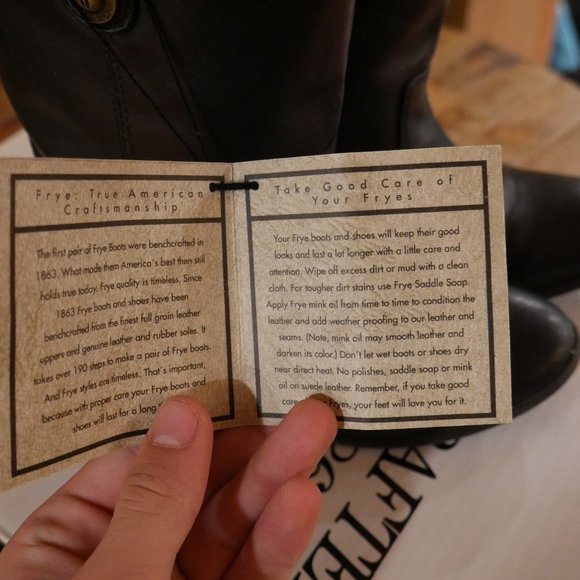 Frye: True American
Craftsmanship
The first pair of Frye Boots were benchcrafted in
1863. What made them America's best then still
holds true today. Frye quality is timeless. Since
1863 Frye boots and shoes have been
benchcrafted from the finest full grain leather
uppers and genuine leather and rubber soles. It
takes over 190 steps to make a pair of Frye boots.
And Frye styles are timeless. That's important,
because with proper care your Frye boots and
shoes will last for a long
Take Good Care of
Your Fryes
Your Frye boots and shoes will keep their good
looks and last a lot longer with a little care and
attention. Wipe off excess dirt or mud with a clean
cloth. For tougher dirt stains use Frye Saddle Soap.
Apply Frye mink oil from time to time to condition the
leather and add weather proofing to our leather and
seams. (Note, mink oil may smooth leather and
darken its color.) Don't let wet boots or shoes dry
near direct heat. No polishes, saddle soap or mink
oil on suede leather. Remember, if you take good
care Fryes, your feet will love you for it.